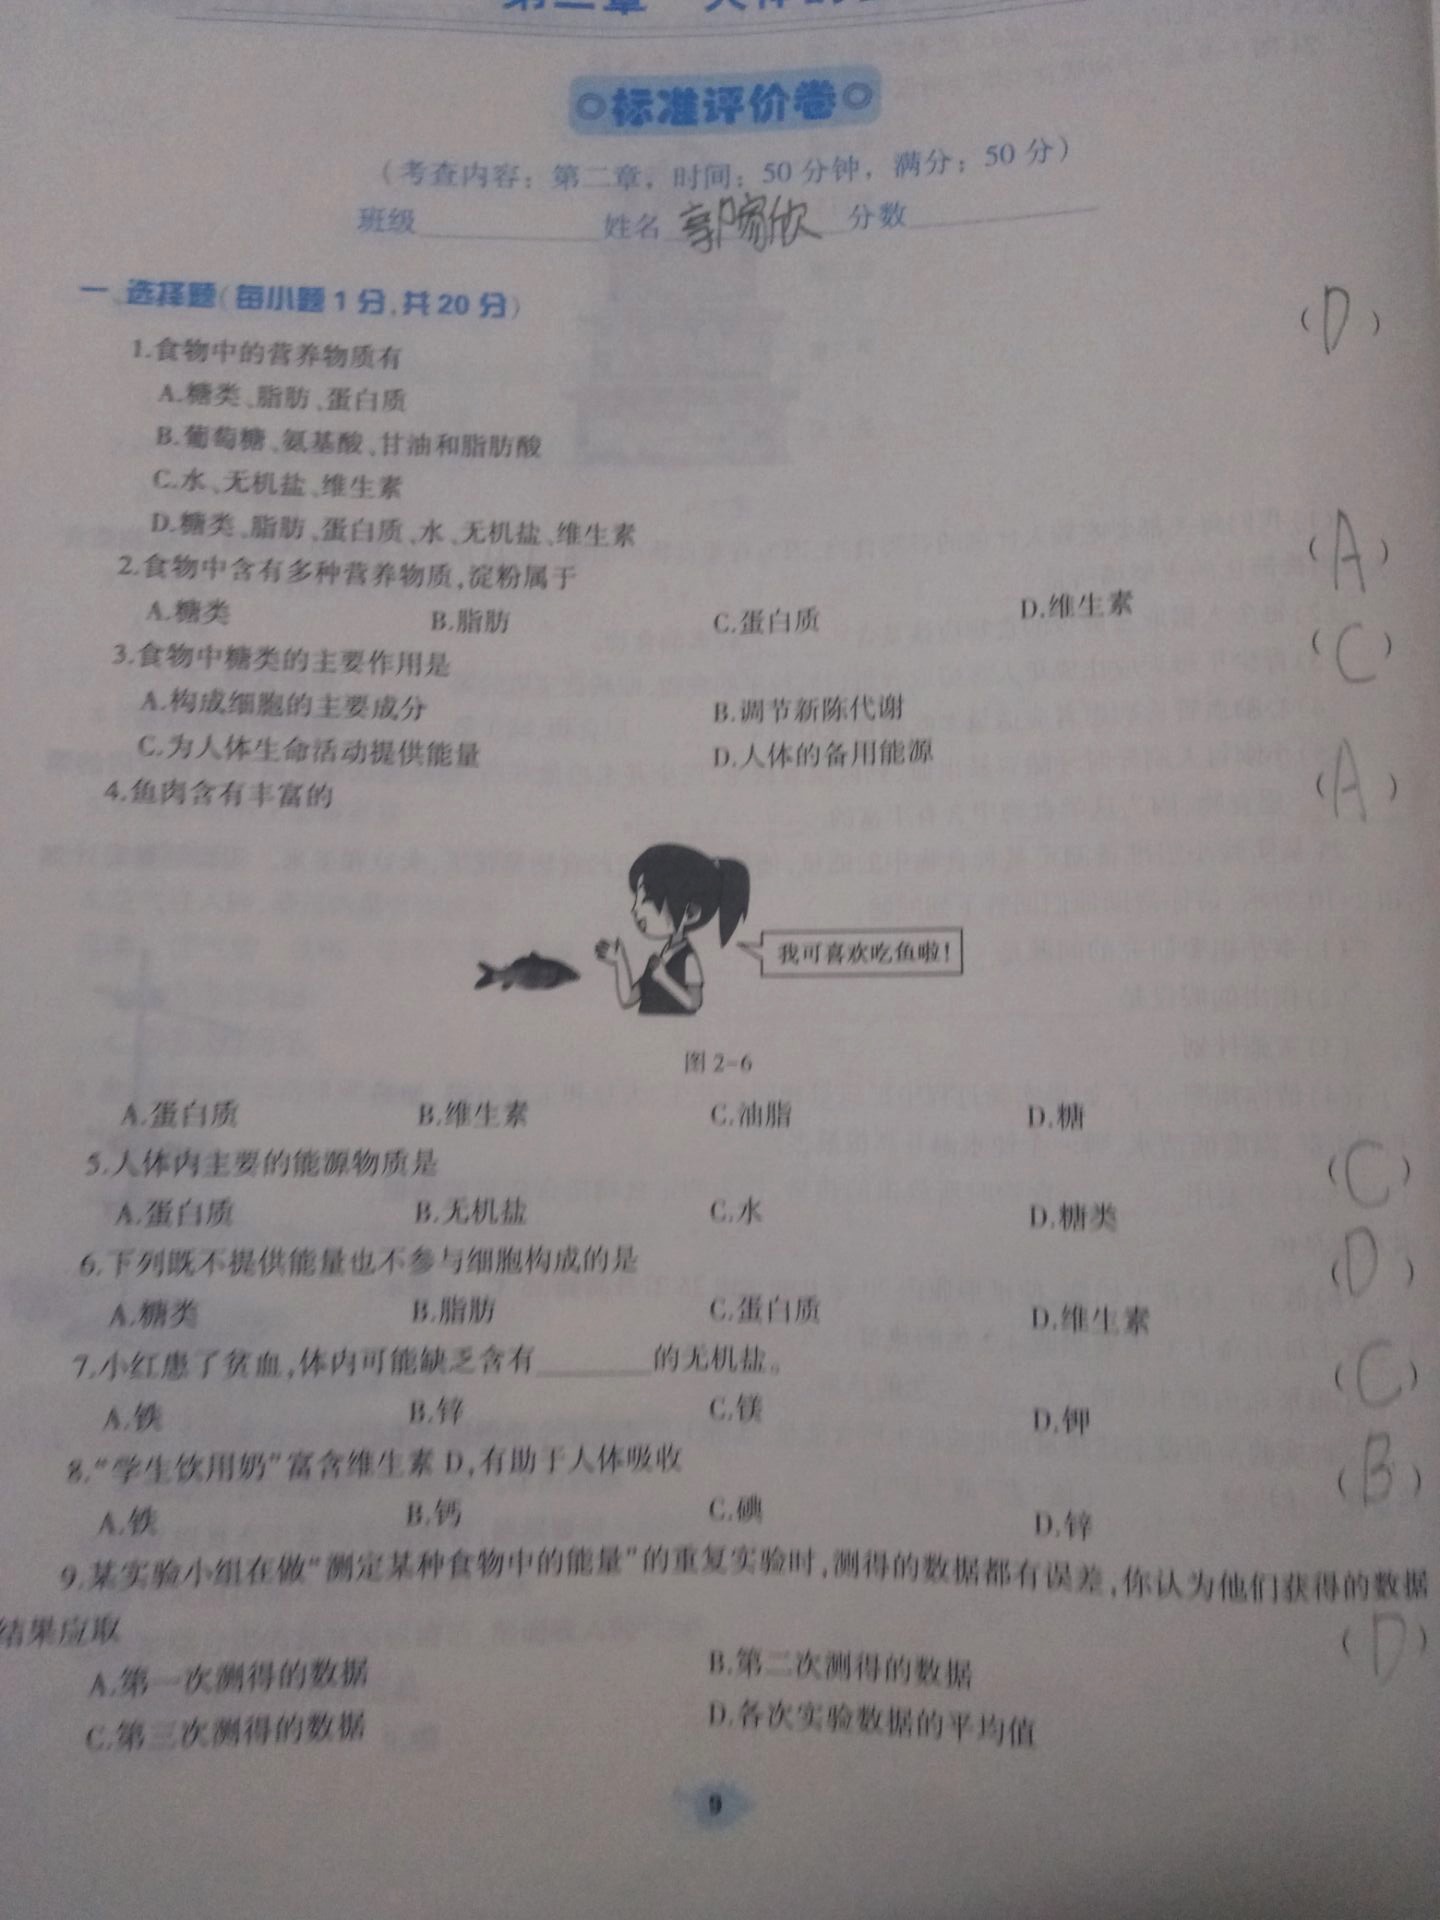 标准评价卷
(考查内容:第二章,时间:50分钟,满分:50分)
班级 姓名 郭家欣 分数
一、选择题(每小题1分,共20分)
1.食物中的营养物质有 (D)
A.糖类、脂肪、蛋白质
B.葡萄糖、氨基酸、甘油和脂肪酸
C.水、无机盐、维生素
D.糖类、脂肪、蛋白质、水、无机盐、维生素
2.食物中含有多种营养物质,淀粉属于 (A)
A.糖类 B.脂肪 C.蛋白质 D.维生素
3.食物中糖类的主要作用是 (C)
A.构成细胞的主要成分 B.调节新陈代谢
C.为人体生命活动提供能量 D.人体的备用能源
4.鱼肉含有丰富的 (A)
我可喜欢吃鱼啦!
图2-6
A.蛋白质 B.维生素 C.油脂 D.糖
5.人体内主要的能源物质是 (C)
A.蛋白质 B.无机盐 C.水 D.糖类
6.下列既不提供能量也不参与细胞构成的是 (D)
A.糖类 B.脂肪 C.蛋白质 D.维生素
7.小红患了贫血,体内可能缺乏含有________的无机盐。 (C)
A.铁 B.锌 C.镁 D.钾
8.“学生饮用奶”富含维生素D,有助于人体吸收 (B)
A.铁 B.钙 C.碘 D.锌
9.某实验小组在做“测定某种食物中的能量”的重复实验时,测得的数据都有误差,你认为他们获得的数据
结果应取 (D)
A.第一次测得的数据 B.第二次测得的数据
C.第三次测得的数据 D.各次实验数据的平均值
9